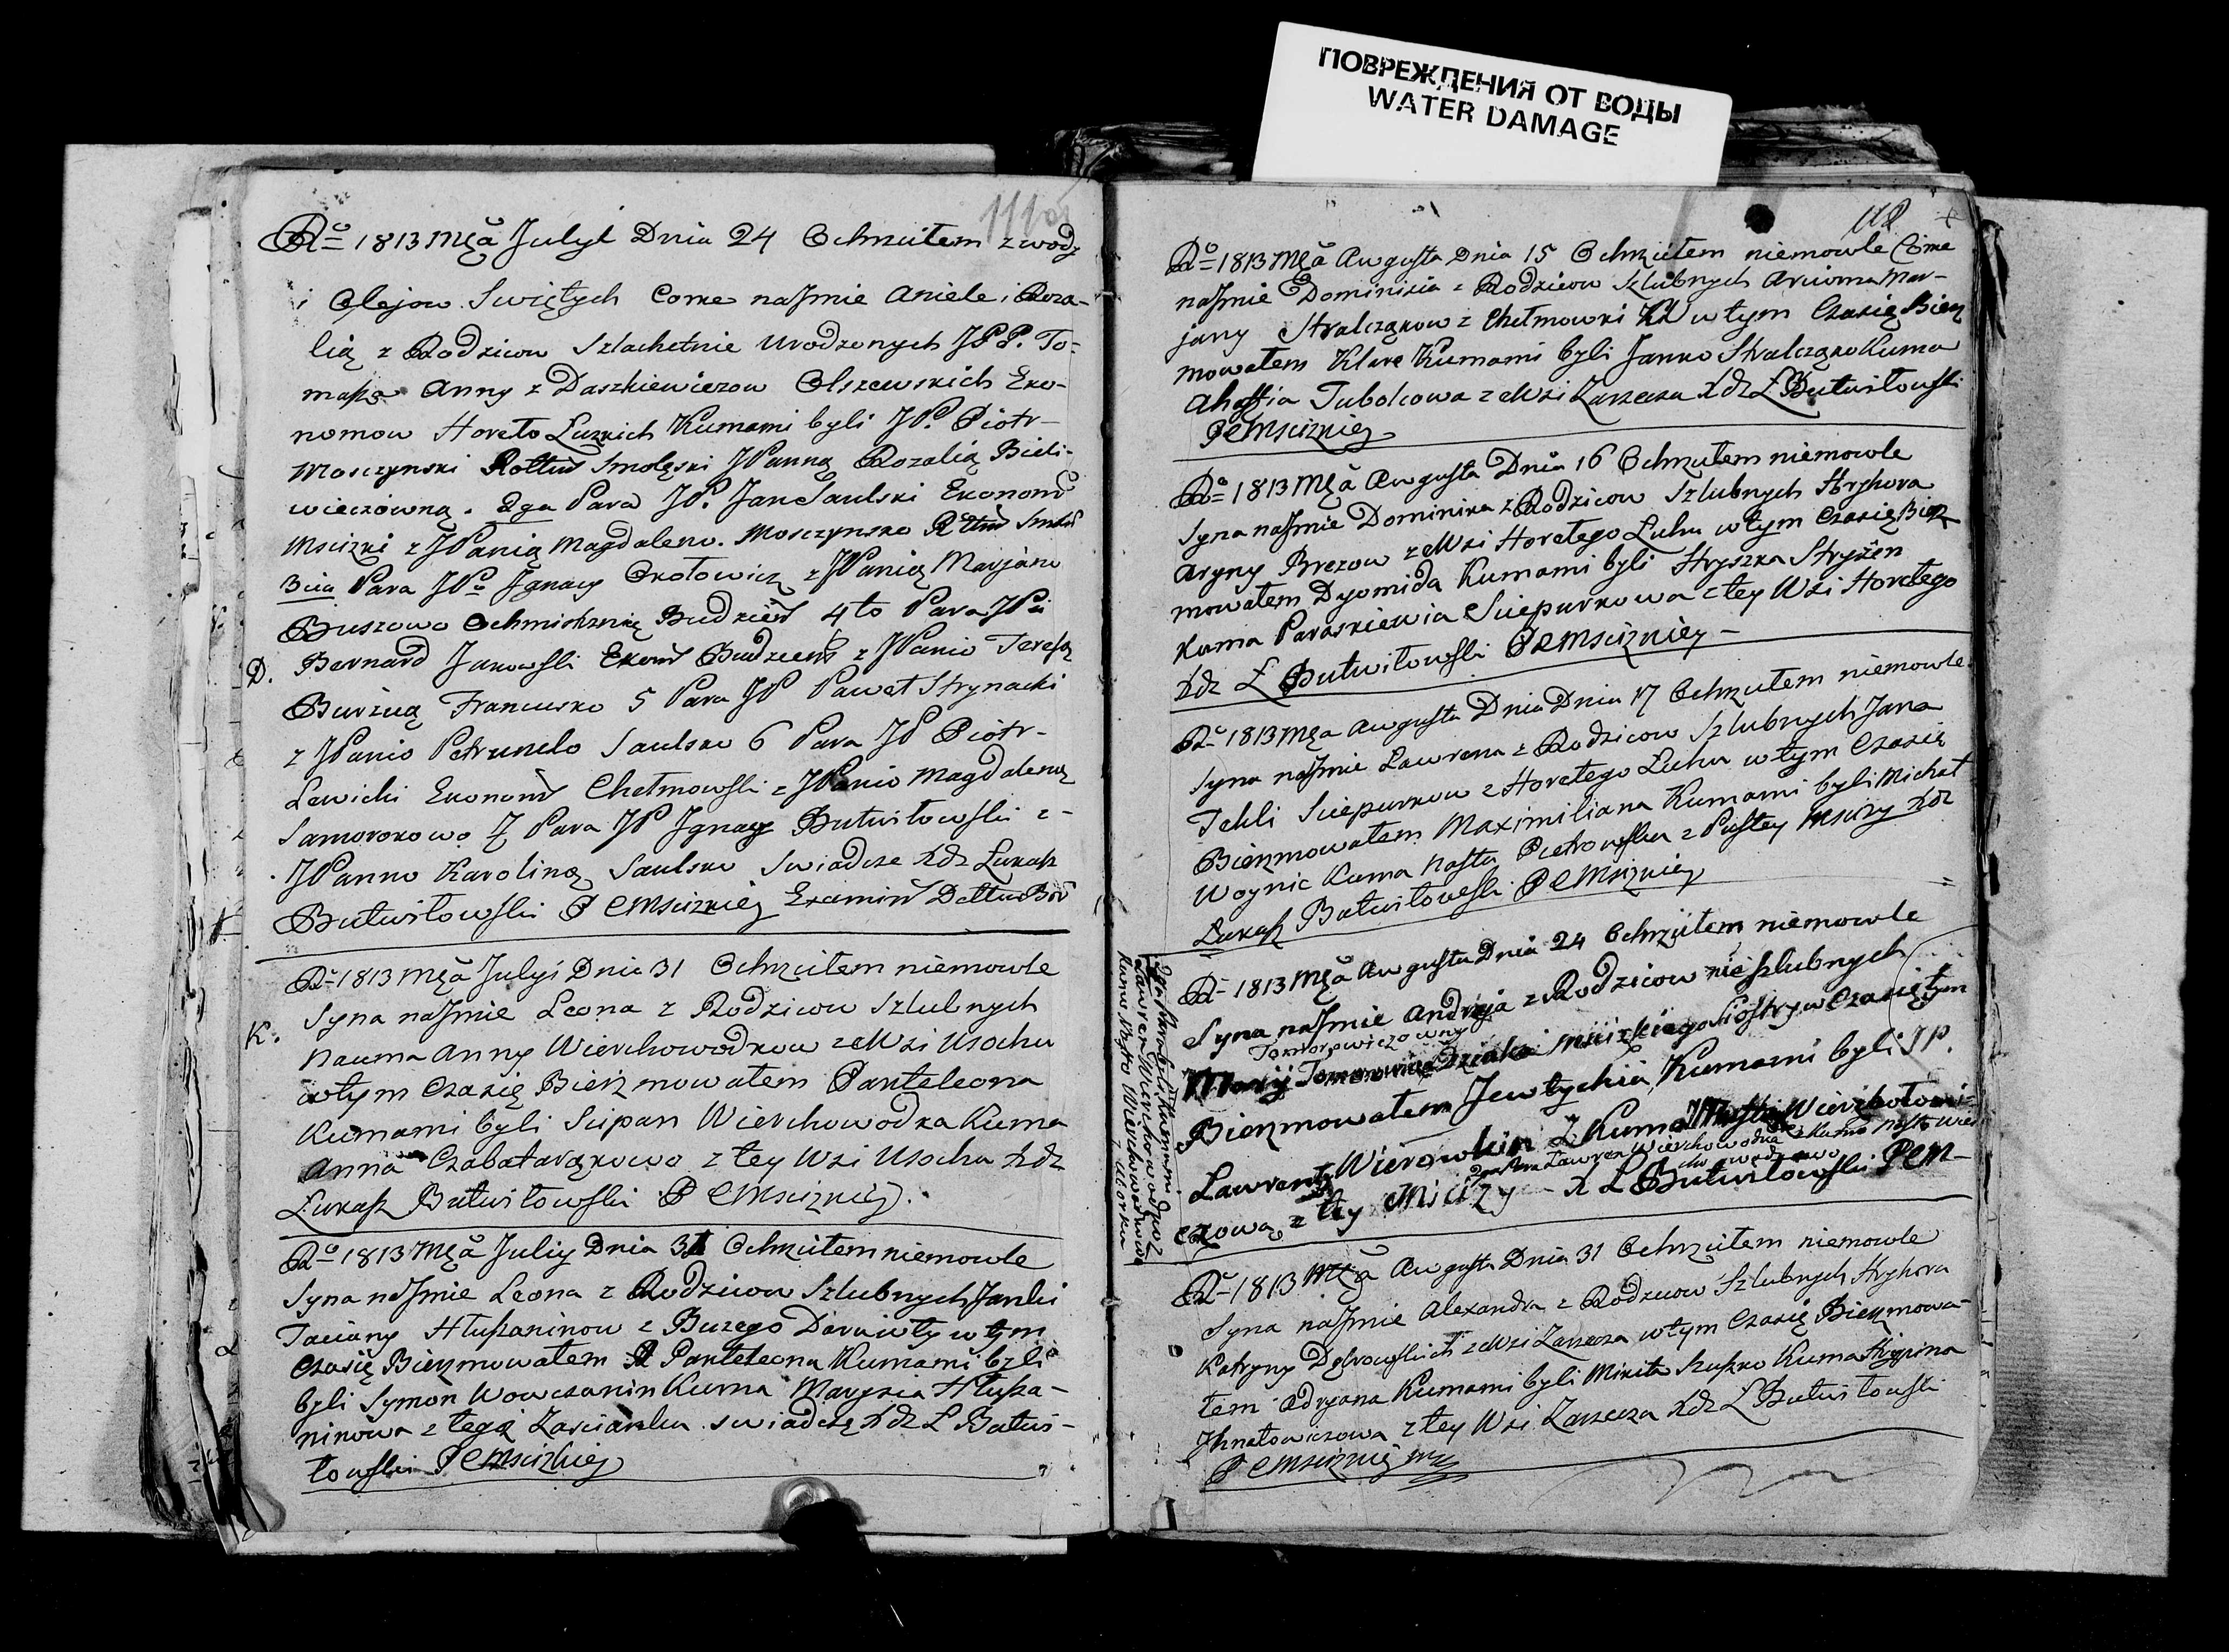 ПОВРЕЖДЕНИЯ ОТ ВОДЫ
WATER DAMAGE
111
Rº 1813 Mca Julyi Dnia 24 Ochrzciłem z wody
i Olejow Swiętych Corke naJmie Aniele i Roza-
lią z Rodzicow Szlachetnie Urodzonych JPP. To-
masza Anny z Daszkiewiczow Olszewskich Eko-
nomow Horeto Luzkich Kumami byli JP. Piotr
Mosczynski Smolęski JPanną Rozalią Bieli-
wieczówną. 2ga Para JP. Jan Saulski Ekonom
Mscizki z JPanią Magdaleno Mosczynsko
3cia Para JP Jgnacy Orotowicz z JPanią Marjano
Buszowo Ochmistrznią Budzień 4to Para JPa
D. Bernard Jakowski Ekom Budzień z JPanio Teresą
Burzuą Francusko 5 Para JP Paweł Strynacki
z JPanio Petrunelo Saulsko 6 Para JP Piotr
Lewicki Ekonom Chełmowski z JPanio Magdaleną
Samorokowo 7 Para JP Jgnacy Butwiłowski z
JPanno Karoliną Saulsko Swiadcze Xdz Łukasz
Butwiłowski P C Mscizkiey
Rº 1813 Mca Julyi Dnia 31 Ochrzciłem niemowle
K. Syna naJmie Leona z Rodzicow Szlubnych
Nauma Anny Wierchowodkow ze Wsi Usochu
w tym Czasię Bierzmowałem Panteleona
Kumami byli Scipan Wierchowodka Kuma
Anna Czabatarąkowo z tey Wsi Usochu Xdz
Łukasz Butwiłowski P C Mscizkiey
Rº 1813 Mca Julij Dnia 31 Ochrzciłem niemowle
Syna naJmie Leona z Rodzicow Szlubnych Janki
Taciany Hłuszaninow z Buzego w tym
Czasię Bierzmowałem Panteleona Kumami byli
byli Symon Wowczanin Kuma Maryzia Hłusza-
ninowa z tego Zascianku swiadczę Xdz Ł Butwi-
łowski P C Mscizkiey
112
Rº 1813 Mca Augusta Dnia 15 Ochrzciłem niemowle Corke
naJmie Dominikia z Rodzicow Szlubnych Arcioma Mar-
jany Stralcząkow z Chełmowki w tym Czasię Bierz
mowałem Klare Kumami byli Janko Stralcząko Kuma
Ahaffia Tubolcowa ze Wsi Zarzecza Xdz Ł Butwiłowski
P C Mscizkiey
Rº 1813 Mca Augusta Dnia 16 Ochrzciłem niemowle
Syna naJmie Dominika z Rodzicow Szlubnych Hryhora
Aryny Brezow ze Wsi Horełego Luhu w tym Czasię Bierz
mowałem Dyomida Kumami byli Hryszka Stryżen
Kuma Paraskiewia Sciepurkowa z tey Wsi Horełego
Xdz Ł Butwiłowski P C Mscizkiey
Rº 1813 Mca Augusta Dnia Dnia 17 Ochrzciłem niemowle
Syna naJmie Lawrena z Rodzicow Szlubnych Jana
Tekli Sciepurkow z Horełego Luhu w tym Czasię
Bierzmowałem Maximiliana Kumami byli Michał
Woynic Kuma Nasta Pietrowska z Pustey Mscizy Xdz
Łukasz Butwiłowski P C Mscizkiey
Rº 1813 Mca Augusta Dnia 24 Ochrzciłem niemowle
Syna naJmie Andreja z Rodzicow nieszlubnych
Marij Dziaka Mscizkiego Siostry w Czasię tym
Bierzmowałem Jewtychia Kumami byli JP.
Lawrenty z Kumą Wierzbołowi-
2ga Para Lawren Wierchowodka z Kumo Nasto Wier
chowodkowo
czową z tey Mscizy X Ł Butwiłowski P C M
Lawren Wierchowodka z
Kumo Nasto Wierchowodkowo
Rº 1813 Mca Augusta Dnia 31 Ochrzciłem niemowle
Syna naJmie Alexandra z Rodzicow Szlubnych Hryhora
Katryny Dąbrowskich ze Wsi Zarzecza w tym Czasię Bierzmowa-
łem Adryana Kumami byli Mikita Szupko Kuma
Jhnatowiczowa z tey Wsi Zarzecza Xdz Ł Butwiłowski
P C Mscizkiey